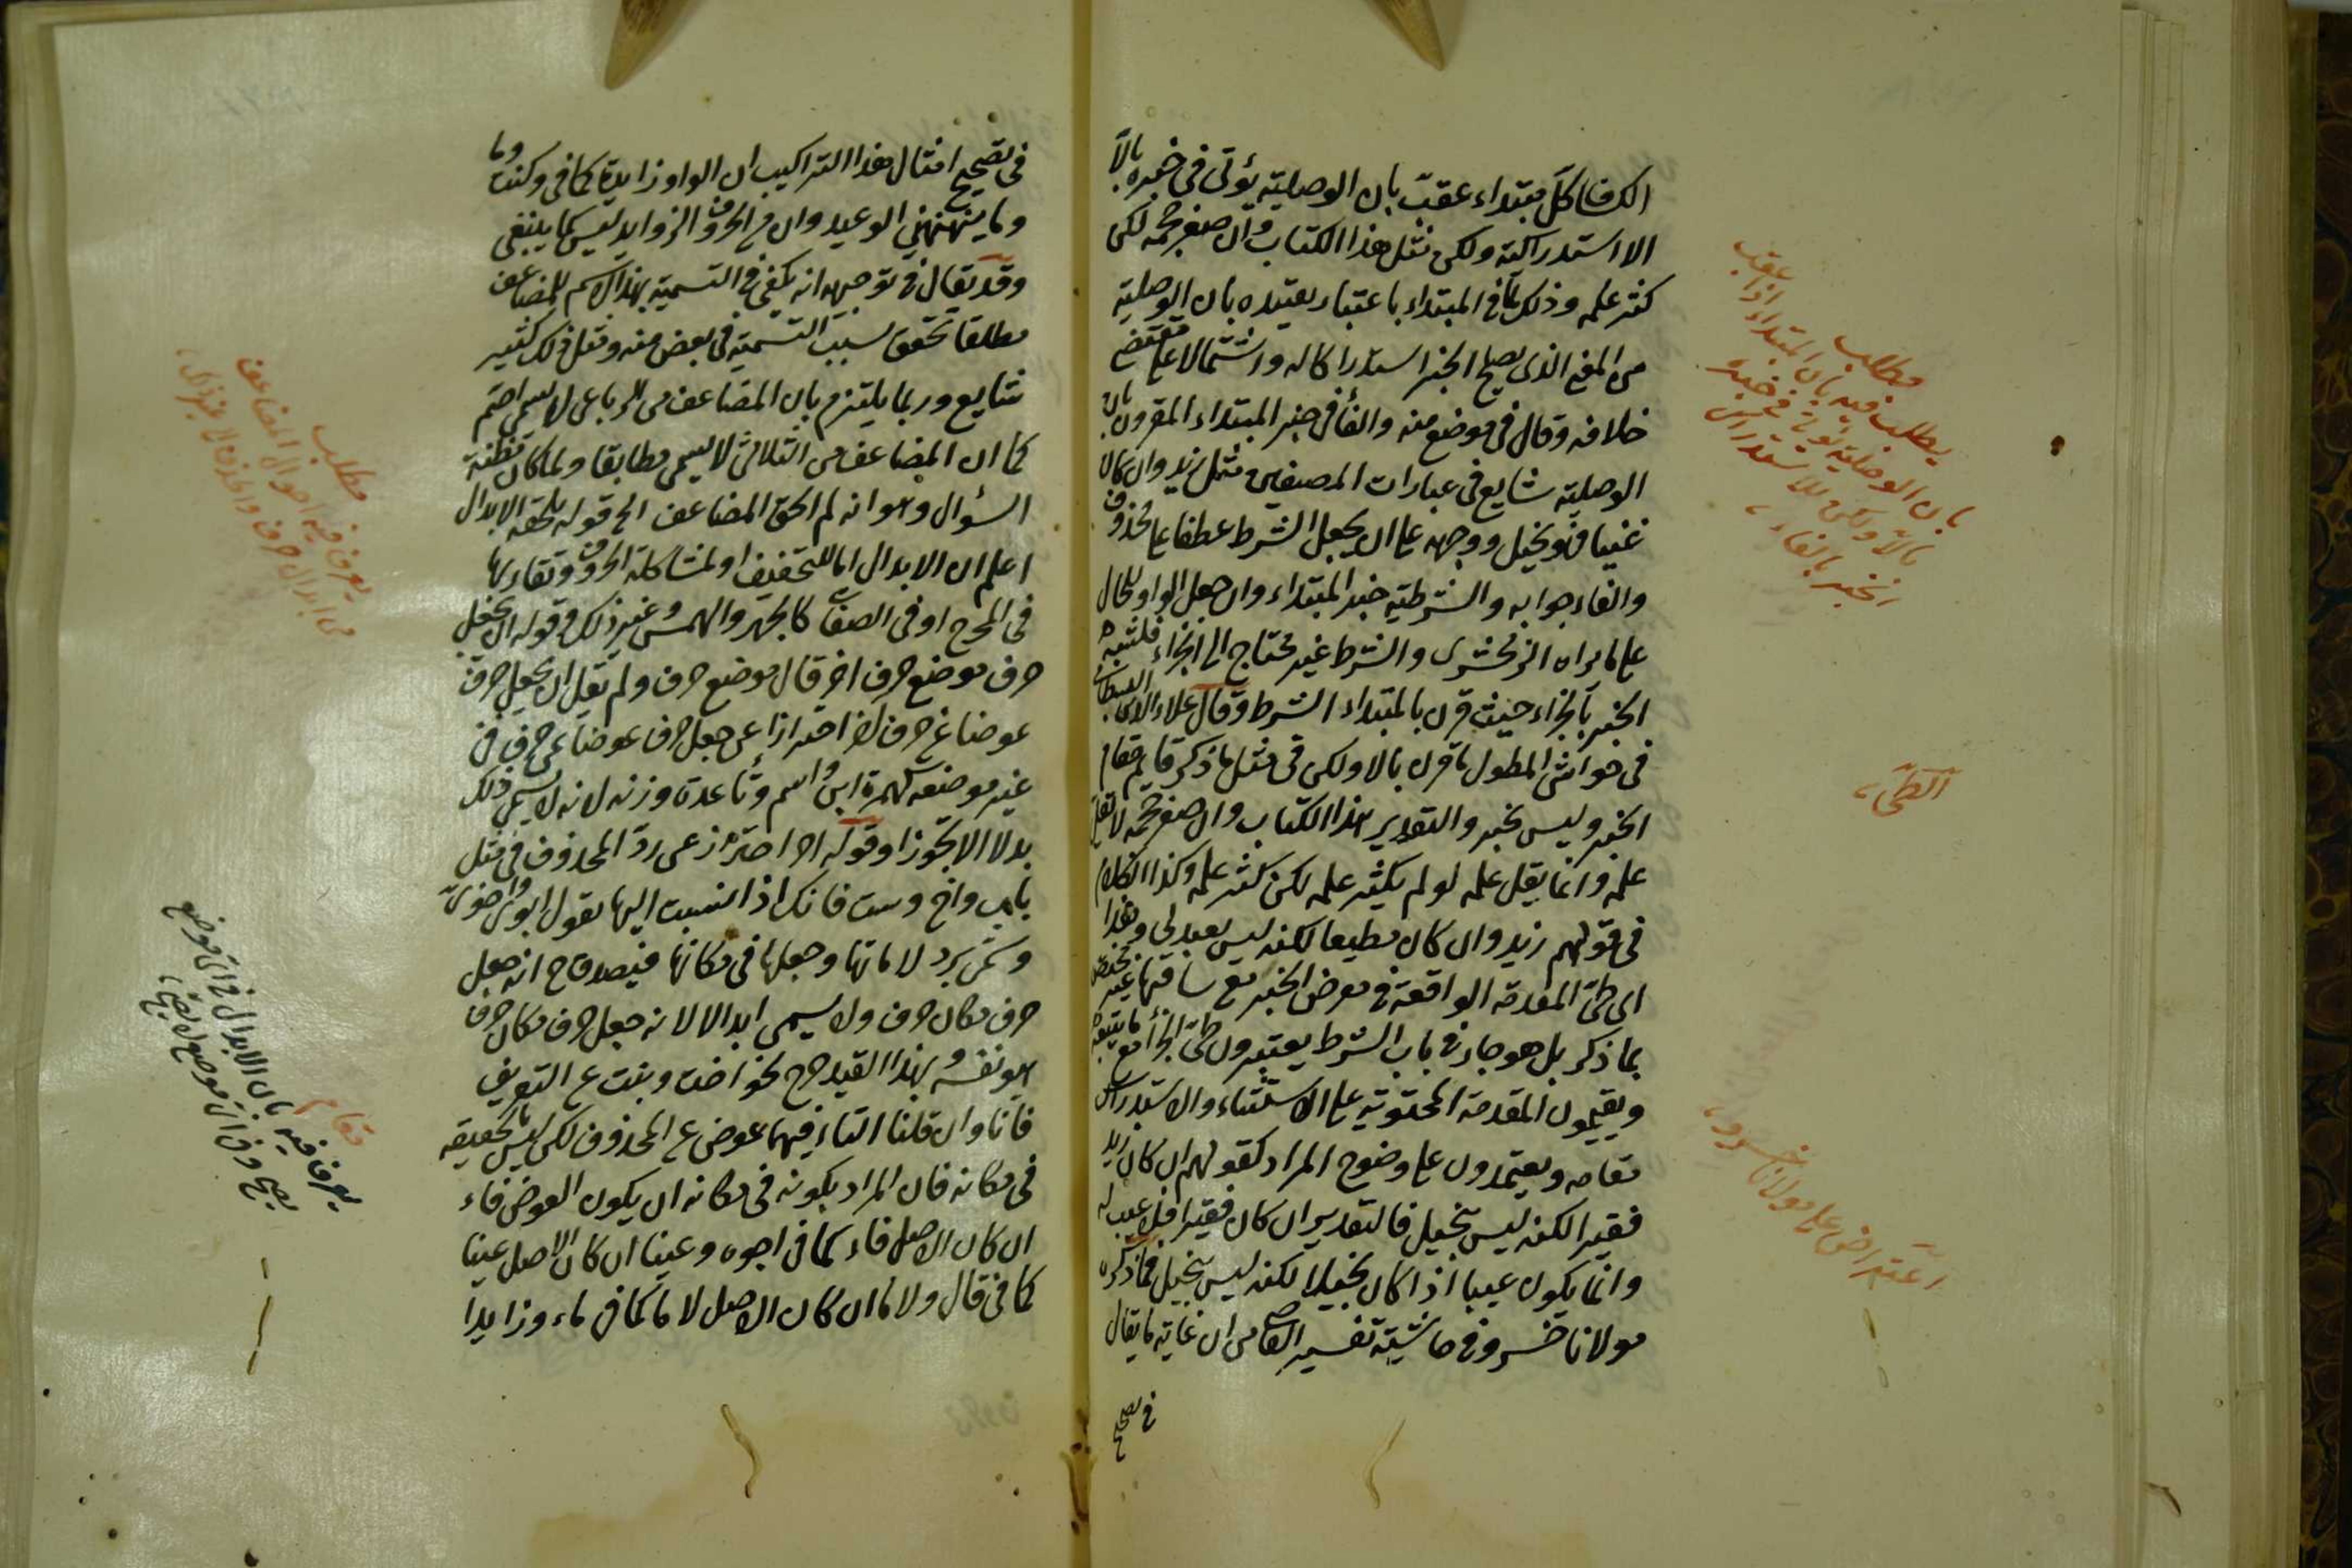 الكفا كل مبتداء عقب بان الوصلية يؤتى فى خبره بالا
الا استدراكية ولكن مثل هذا الكتاب وان صغر حجمه لكن
كثر علمه وذلك لما فى المبتداء باعتبار تقييده بان الوصلية
من المعنى الذى يصلح الخبر استدراكا له واشتمالا على مقتضى
خلافه وقال فى موضع منه والفا فى خبر المبتداء المقرون بان
الوصلية شايع فى عبارات المصنفين مثل زيد وان كان
غنيا فهو بخيل ووجهه على ان يجعل الشرط عطفا على محذوف
والفاء جوابه والشرطية خبر المبتداء وان جعل الواو للحال
على ما يراه الزمخشرى والشرط غير محتاج الى الجزاء فلشبه
الخبر بالجزاء حيث قرن بالمبتداء الشرط وقال علاء الدين البسطامى
فى حواشى المطول ما قرن بالا ولكن فى مثل ما ذكر قايم مقام
الخبر وليس بخبر والتقدير هذا الكتاب وان صغر حجمه لا يقل
علمه وانما يقل علمه لو لم يكثر علمه لكن كثر علمه وكذا الكلام
فى قولهم زيد وان كان مطيعا لكنه ليس بعبد لى وهذا
اى طى المقدمة الواقعة فى معرض الخبر مع ساقتها غير مختص
بما ذكر بل هو جار فى باب الشرط يعتبرون طى الجزاء مع ما يتبعه
ويقيمون المقدمة المحتوية على الاستثناء والاستدراك
مقامه ويعتمدون على وضوح المراد كقولهم ان كان زيد
فقيرا لكنه ليس بخيل فالتقدير ان كان فقيرا فلا عيب له
وانما يكون عيبا اذا كان بخيلا لكنه ليس بخيل فما ذكره
مولانا خسرو فى حاشية تفسير القاضى من ان غاية ما يقال
فى تصحيح
مطلب
يطلب فيه بان المبتداء اذا عقب
بان الوصلية يؤتى فى خبره
بالا ولكن للاستدراك
الخبر بالفاء
الطى
اعتراض على مولانا خسرو
فى تصحيح امثال هذا التراكيب ان الواو زايدة كما فى وكنت وما
وما ينهنهنى الوعيد وان من الحروف الزوايد ليس كما ينبغى
وقد يقال فى توجيهه انه يكفى فى التسمية بهذا الاسم للمضاعف
مطلقا تحقق سبب التسمية فى بعض منه ومثل ذلك كثير
شايع وربما يلتزم بان المضاعف من الرباعى لا يسمى اصم
كما ان المضاعف من الثلاثى لا يسمى مطابقا ولما كان مظنة
السؤال وهو انه لم الحق المضاعف الخ قوله يلحقه الابدال
اعلم ان الابدال اما للتخفيف او لمشاكلة الحروف وتقاربها
فى المخرج او فى الصفات كالجهر والهمس وغير ذلك قوله ان يجعل
حرف موضع حرف اخر قال موضع حرف ولم يقل ان يجعل حرف
عوضا عن حرف اخر احترازا عن جعل حرف عوضا عن حرف فى
غير موضعه كهمزة ابن واسم وتا عدة وزنة لانه لا يسمى ذلك
بدلا الا تجوزا وقوله اخر احتراز عن رد المحذوف فى مثل
باب واخ وست فانك اذا نسبت اليها تقول ابوى واخوى
وستهى برد لاماتها وجعلها فى مكانها فيصدق ح انه جعل
حرف مكان حرف ولا يسمى ابدالا لانه جعل حرف مكان حرف
هو نفسه وبهذا القيد خرج نحو اخت وبنت عن التعريف
فانا وان قلنا التاء فيهما عوض عن المحذوف لكن ليس بالحقيقه
فى مكانه فان المراد بكونه فى مكانه ان يكون العوض فاء
ان كان الاصل فاء كما فى اجوه وعينا ان كان الاصل عينا
كما فى قال ولاما ان كان الاصل لاما كما فى ماء وزايدا
مطلب
يعرف فيه احوال المضاعف
من ابدال حرف واحذف
مقام
يعرف فيه بان الابدال فى اى موضع
يصح وفى اى موضع لا يصح